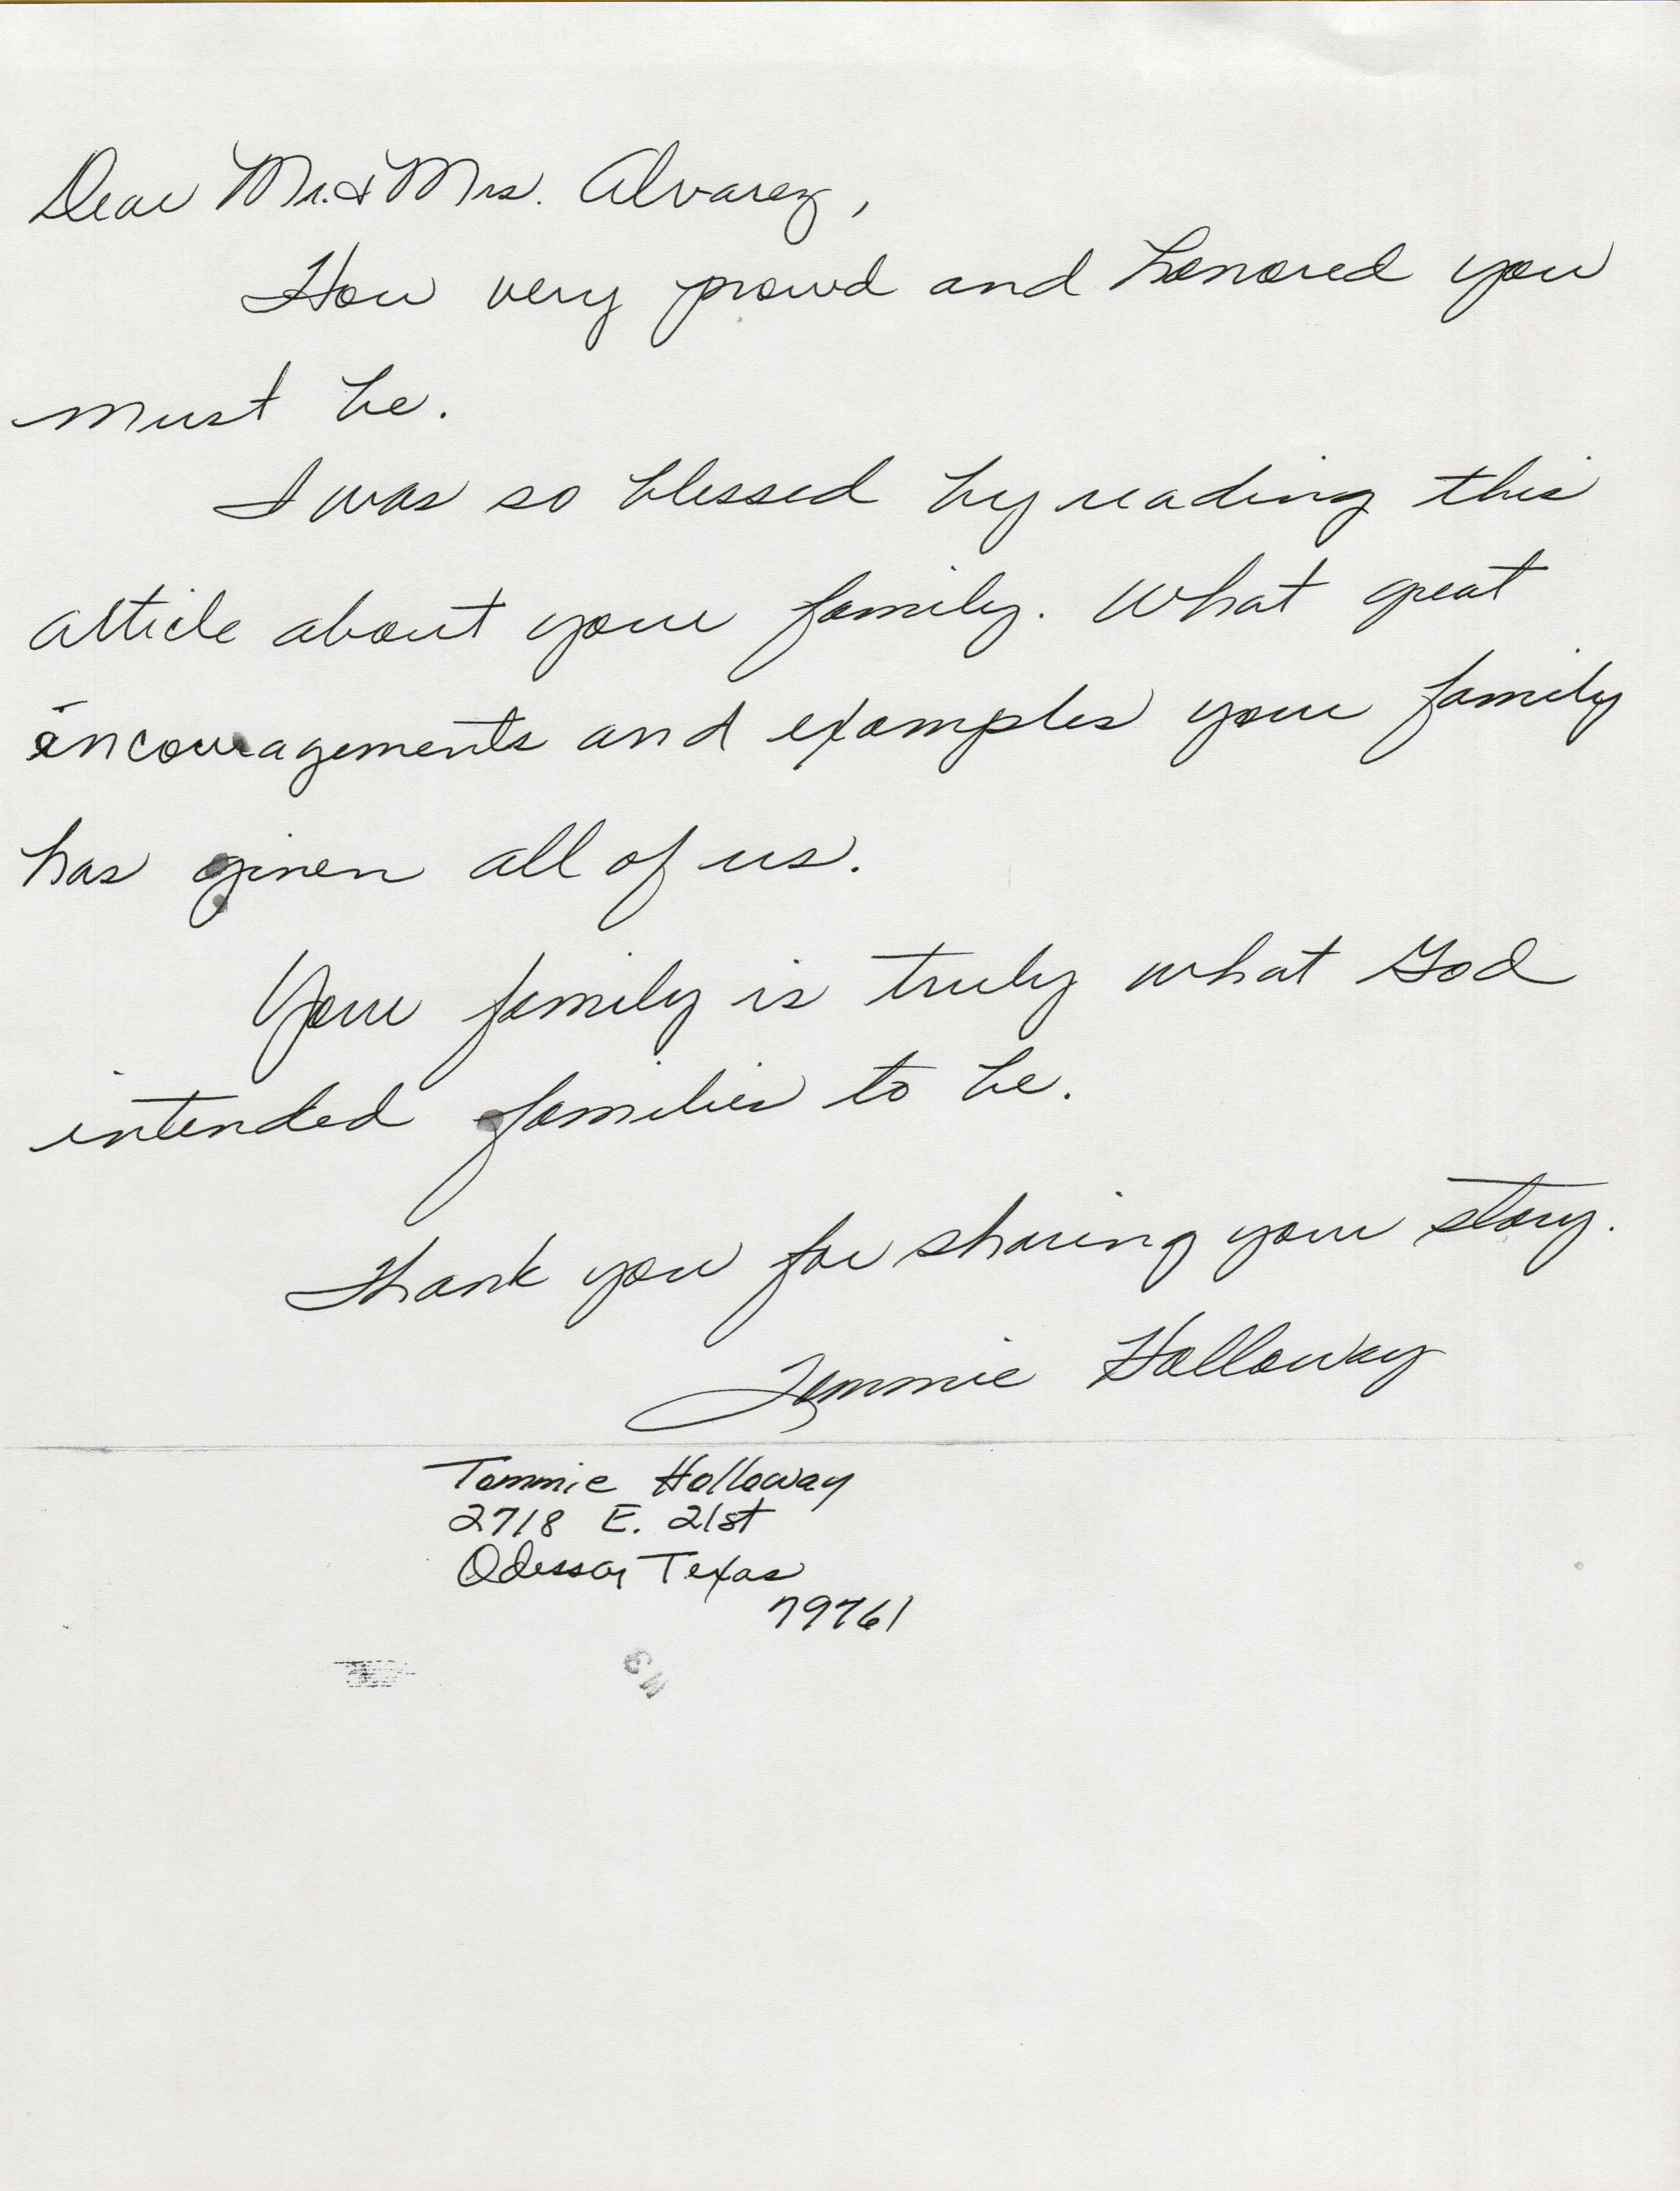 Dear Mr. & Mrs. Alvarez,
How very proud and honored you
must be.
I was so blessed by reading this
article about your family. What great
encouragements and examples your family
has given all of us.
Your family is truly what God
intended families to be.
Thank you for sharing your story.
Tommie Holloway
Tommie Holloway
2718 E. 21st
Odessa, Texas
79761